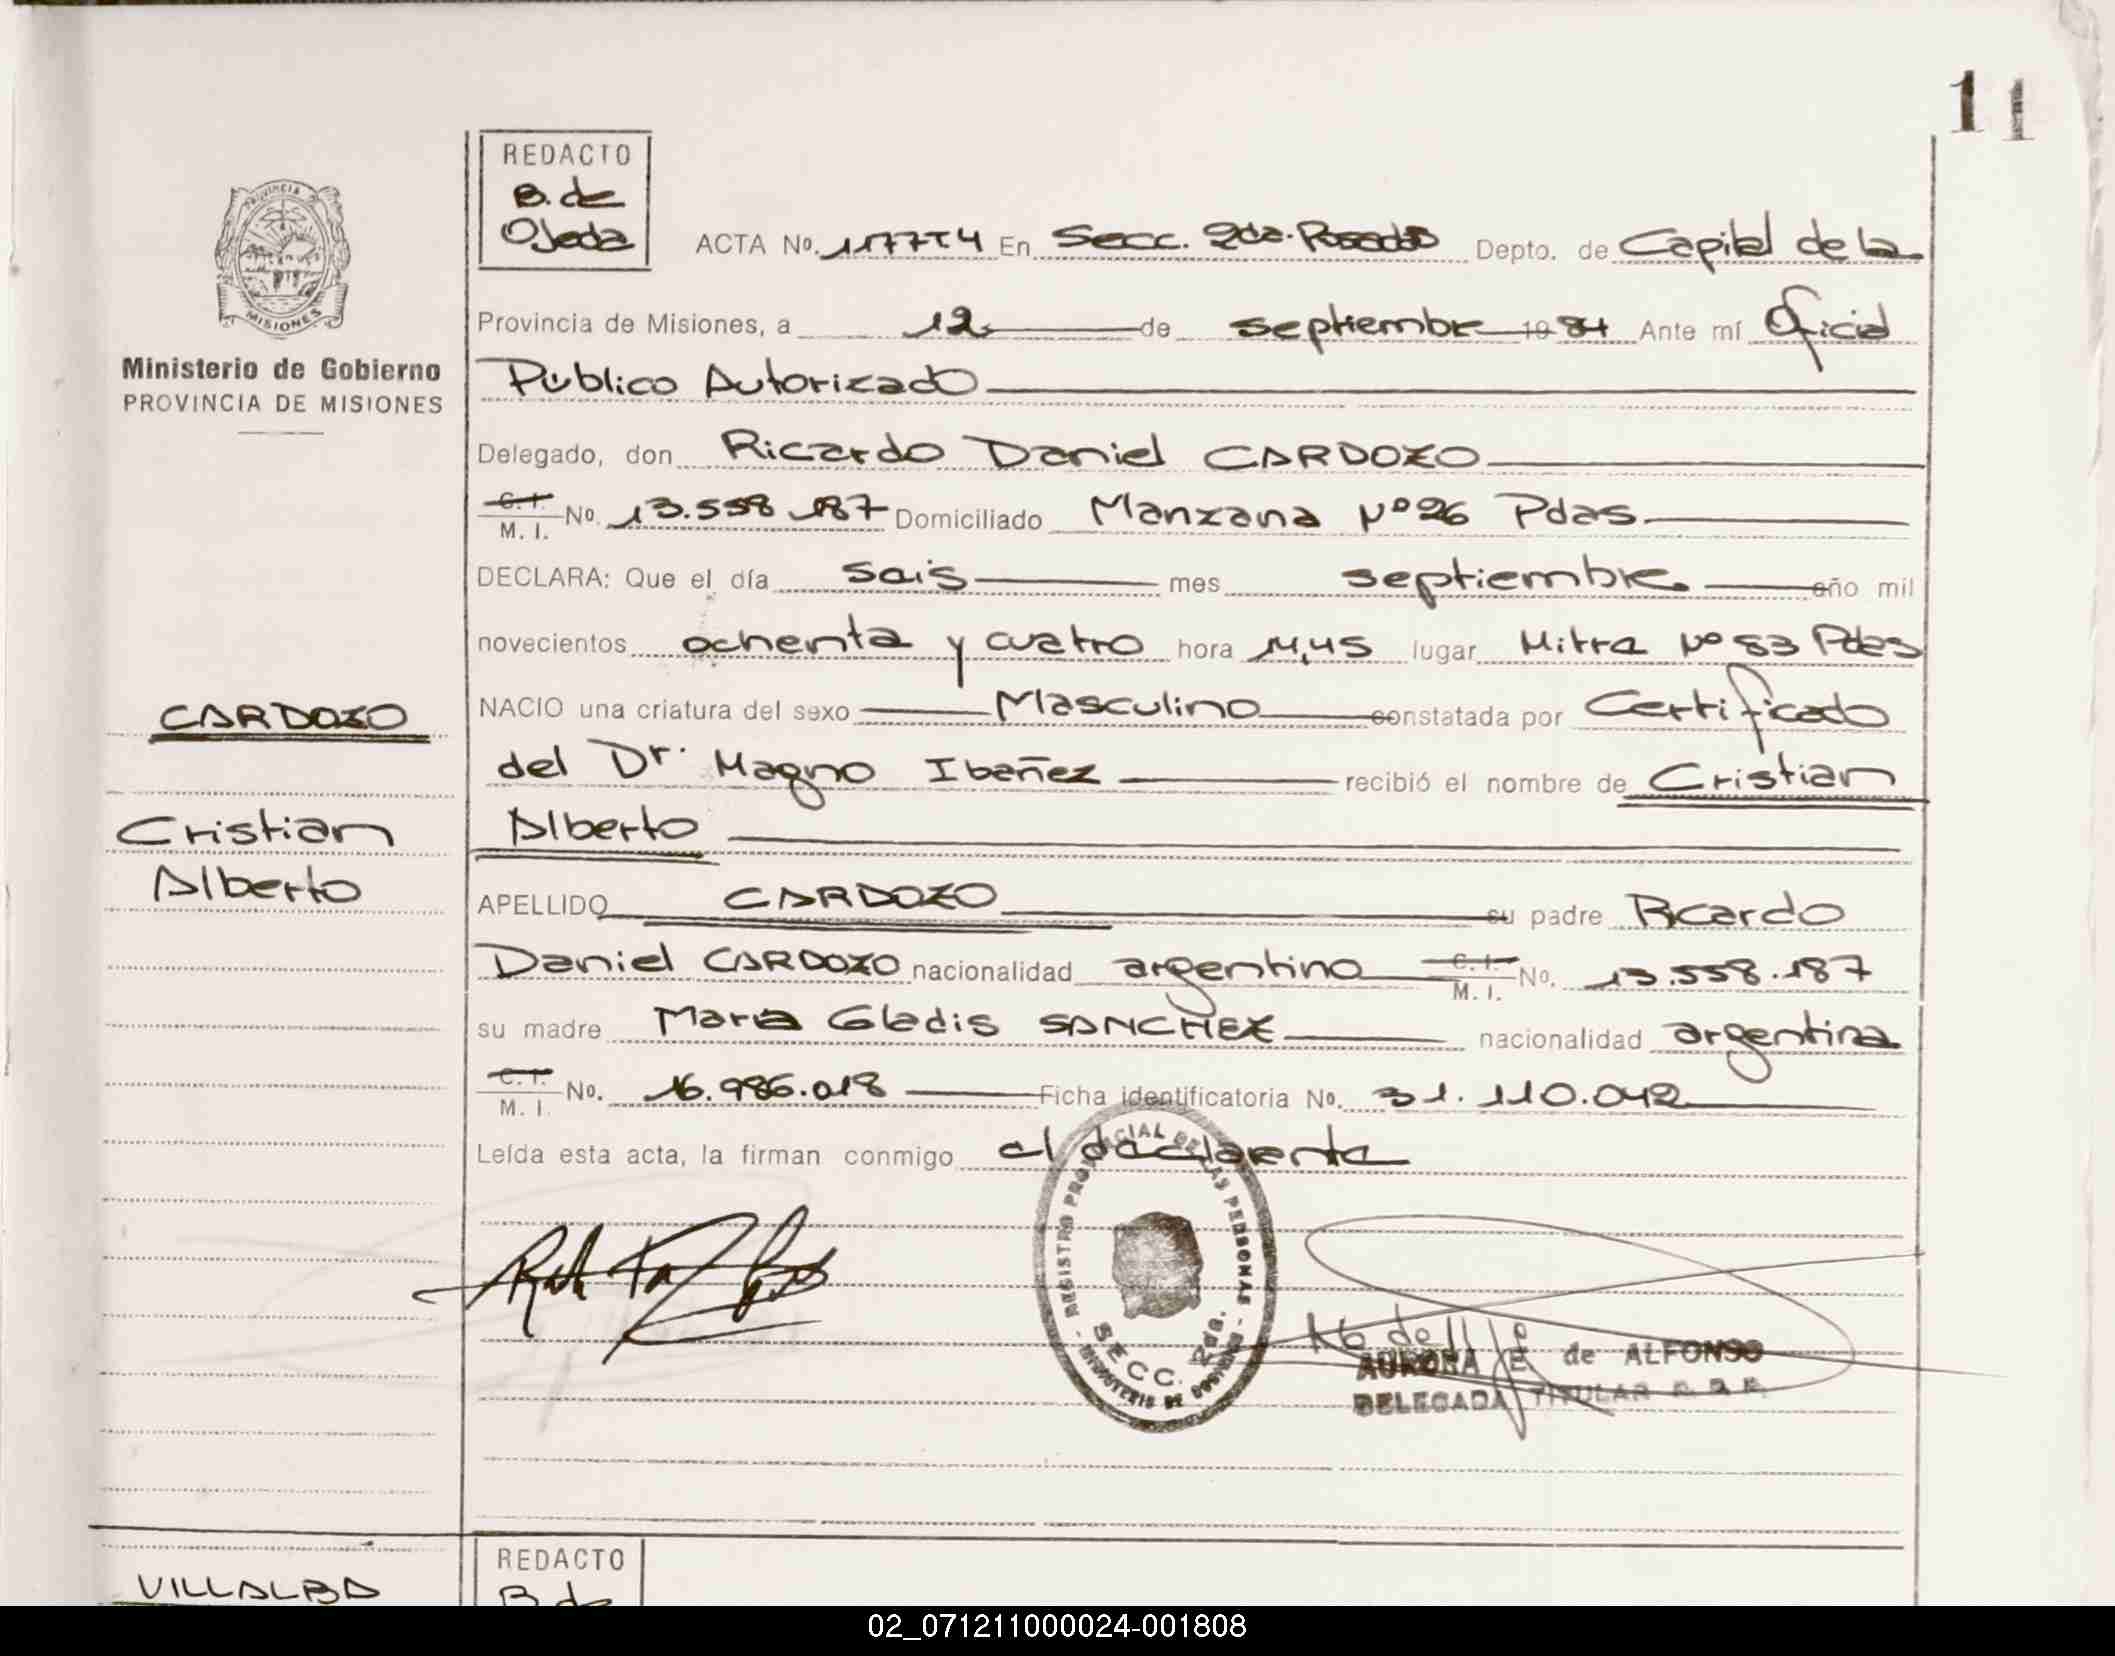 11
REDACTO
B. de
Ojeda
PROVINCIA
MISIONES
Ministerio de Gobierno
PROVINCIA DE MISIONES
ACTA No. En Secc. 2da. Posadas Depto. de Capital de la
Provincia de Misiones, a 12 de septiembre 19 84 Ante mí Oficial
Público Autorizado
Delegado, don Ricardo Daniel CARDOZO
C. I.
M. I. No. 13.558.187 Domiciliado Manzana Nº 26 Pdas
DECLARA: Que el día seis mes septiembre año mil
novecientos ochenta y cuatro hora 11,45 lugar Mitra Nº 83 Pdas
CARDOZO
NACIO una criatura del sexo Masculino constatada por Certificado
del Dr. Magno Ibañez recibió el nombre de Cristian
Cristian
Alberto
Alberto
APELLIDO CARDOZO su padre Ricardo
Daniel CARDOZO nacionalidad argentino C. I. M. I. No. 13.558.187
su madre Maria Gladis SANCHEZ nacionalidad argentina
C. I.
M. I. No. 16.986.018 Ficha identificatoria No. 31.110.042
Leída esta acta, la firman conmigo el declarante
REGISTRO PROVINCIAL DE LAS PERSONAS
SECC. 2da.
AURORA E. de ALFONSO
DELEGADA TITULAR
REDACTO
B. de
VILLALBA
02_071211000024-001808